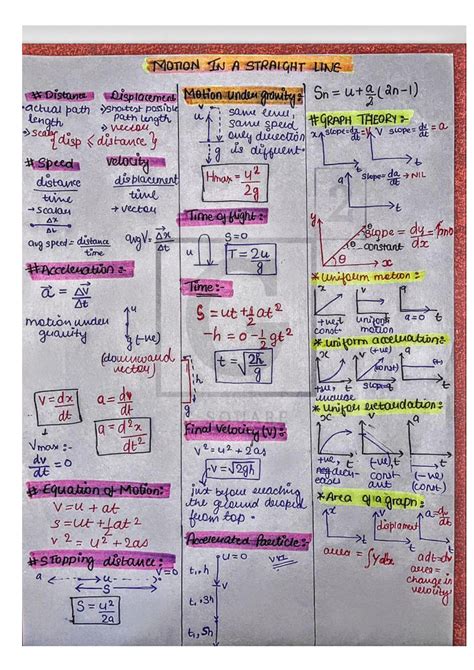 MOTION IN A STRAIGHT LINE
# Distance
Displacement
→ actual path length
→ shortest possible path length
→ scalar
→ vector
{disp ≤ distance}
# Speed
velocity
distance / time
displacement / time
→ scalar
→ vector
avg speed = distance / time
avg V = Δx / Δt
# Acceleration :-
a = ΔV / Δt
motion under gravity
u
g (-ve)
(downward vector)
V = dx / dt
a = dv / dt
a = d²x / dt²
Vmax :-
dv / dt = 0
# Equation of Motion:-
v = u + at
s = ut + 1/2 at²
v² = u² + 2as
# Stopping distance:-
a
u
v=0
S
S = u² / 2a
Motion under gravity:-
u
v
g
same level,
same speed
only direction
is different.
Hmax = u² / 2g
Time of flight:-
u
S=0
T = 2u / g
Time:-
S = ut + 1/2 at²
-h = 0 - 1/2 gt²
t = √2h / g
h
g
SQUARE
Final Velocity (v):-
v² = u² + 2as
v = √2gh
just before reaching
the ground dropped
from top.
Accelerated Particle:-
u=0
t, h
V
t, 3h
t, 5h
Sn = u + a/2 (2n-1)
# GRAPH THEORY:-
x
slope = dx / dt = v
t
v
slope = dv / dt = a
t
a
slope = da / dt → NIL
t
y
slope = dy / dx = tanθ
θ → constant
x
* Uniform motion:-
x
t
v
t
a
t
+ve, const
uniform motion
a=0
* uniform acceleration:-
x
v (+ve)
t
+ve
slope
* Uniform retardation:-
x
v
t
(-ve)
(-ve)
* Area of a graph:-
x
v
displacement
t
area = ∫y dx
area = change in velocity